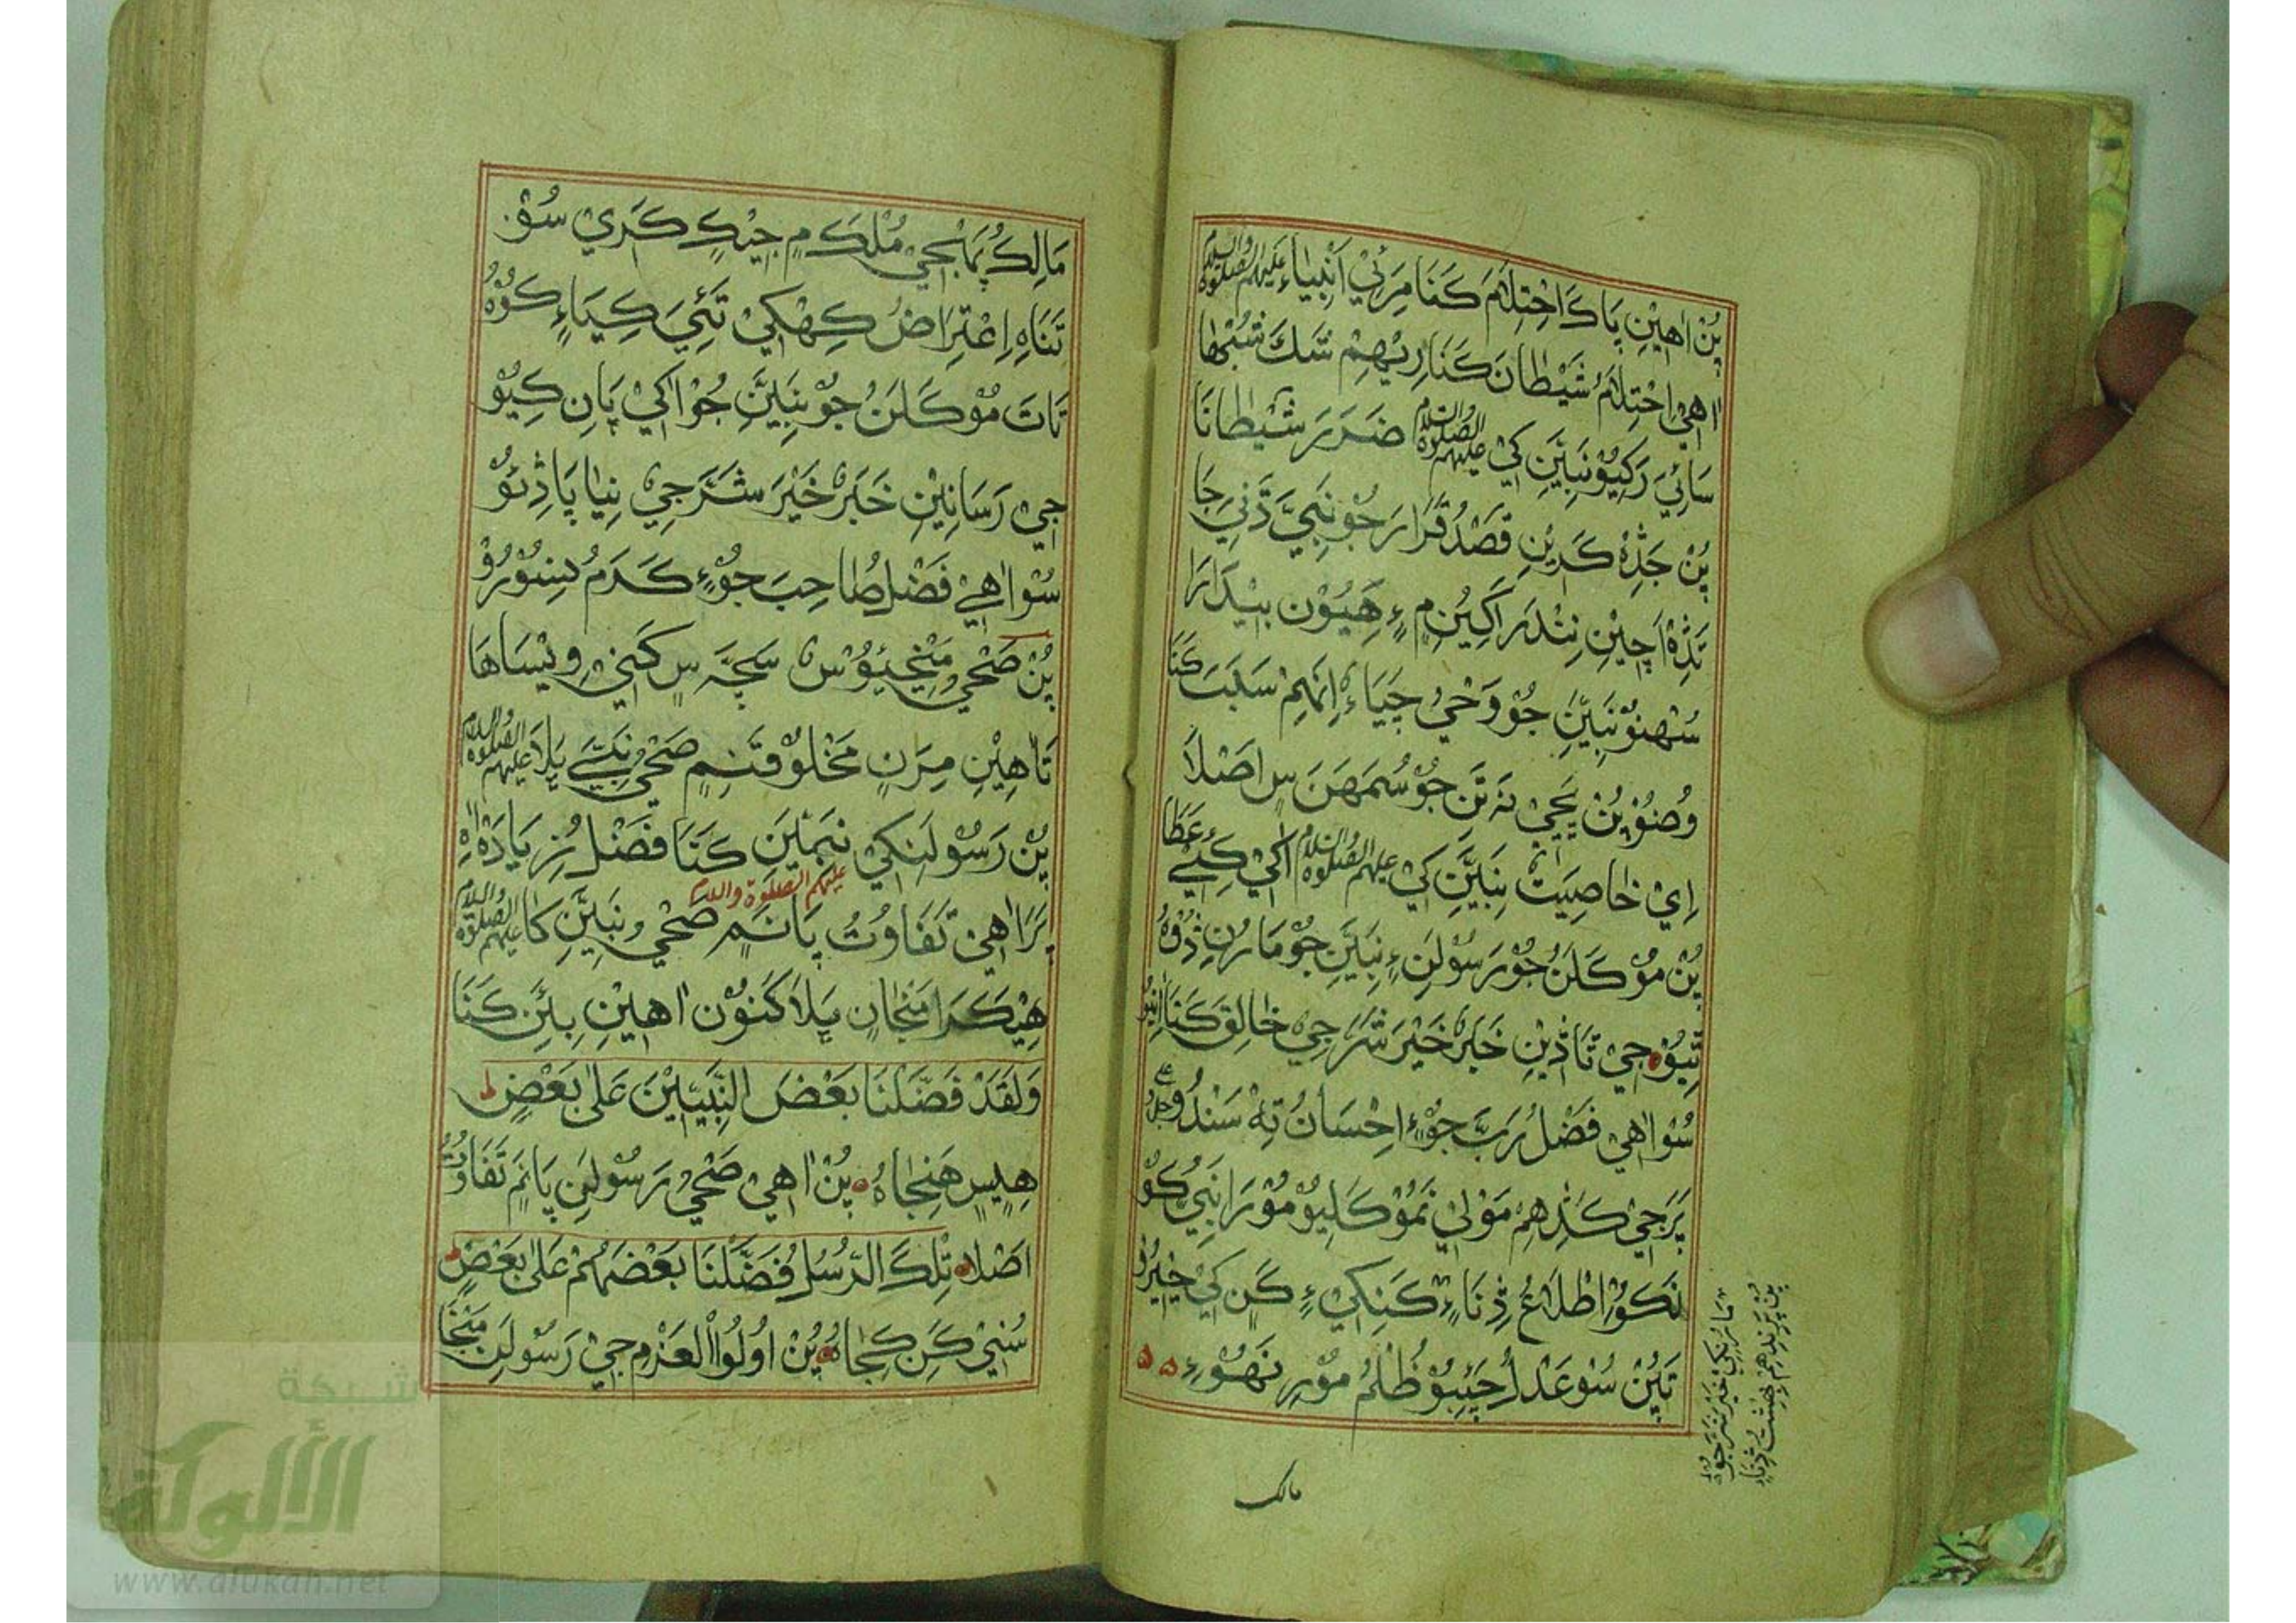 پُنْ اٰهِيْنِ پَاكَ اِحْتِلَامَ كَنَا مِرَئِيْ اَنْبِيَاءِ عَلَيْهِمُ الصَّلٰوةُ وَالسَّلَامُ
اٰهِيْ اِحْتِلَامُ شَيْطَانَ كَنَا رِيْهِمْ شَكَ شُبْهَا
سَائِيَ رَكِيُوْ نَبِيَّنِ كَيْ عَلَيْهِمُ الصَّلٰوةُ وَالسَّلَامُ ضَرَرَ شَيْطَانَا
پُنْ جَڎِهْ كَرِيْنِ قَصْدُ قَرَارَ جُوْ نَبِيَّ دَّنِيَ جَا
تَڎِهْ اَچِيْنِ نِنْدَرَ اَكِيُنِ مِ ءٍ هِيُوْن بِيْدَارَا
سُهڻوْ نَبِيَّنِ جُوْ وَحْيُ چَيَاءِ اِنَهِمْ سَبَبَ كَنَا
وُضُوْ پُنْ يَّجِيْ نَہ تَنِ جُوْ سُمَهَنَ سٖ اَصْلَا
اِيْ خَاصِيَتْ نَبِيَّنِ كَيْ عَلَيْهِمُ الصَّلٰوةُ وَالسَّلَامُ اَكَيْ كَئِيْ عَطَا
پُنْ مُوْكَلَنُ جُوْ رَسُوْلَنِ ءٍ نَبِيَّنِ جُوْ مَارُنِ ڎُوْهُ
ٿِيُوْ جِيْ تَا ڎِيْنِ خَبَرْ خَيْرَ شَرَ جِيْ خَالِقَ كَنَا اٰنِيُوْ
سُوْ اٰهِيْ فَضْلُ رَبَّ جُوْ ءٍ اِحْسَانُ تِهْ سَنْدُوْ جَلَّ وَعَ
پَرَ جِيْ كَڎِهِمْ مَوْلٰي نَمُوْكَلِيُوْ مُوْرَا نَبِيْ كُوْ
نَكُوْ اِطْلَاعُ ڎِنَاءِ كَنِكِيْ ءٍ كَنِ كَيْ خَيْرُ
تَپُنْ سُوْ عَدْلُ چَئِبُوْ ظُلْمُ مُوْرِ نَهُوْءِ
مالك
مَالِكُ پَہَا بْجِيْ مُلْكَ مِ جِيْكٖ كَرِيْ سُوْ
تَنَاهِ اِعْتِرَاضُ كِهْكِيْ تَئِيَ كِيَاءِ كُوْهُ
تَاتَ مُوْكَلَنُ جُوْ نَبِيَّنِ جُوْ اَكَيْ پَانِ كِيُوْ
جِيْ رَسَانِيْنِ خَبَرْ خَيْرَ شَرَ جِيْ نِيَا پَا ڎِئُوْ
سُوْ اٰهِيْ فَضْلُ صَاحِبَ جُوْ ءٍ كَرَمُ سِنْوُرُوْ
پُنْ صَحْيْ مَنْجِيُوْسْ سَچَّہ سٖ كَنِيْ وِيْسَاهَا
تَا اٰهِيْنِ مِرَنِ مَخْلُوْقَنِ مٖ صَحْيُ نَبِيَّ ڀَلَا عَلَيْهِمُ الصَّلٰوةُ وَالسَّلَامُ
پُنْ رَسُوْلَنِكِيْ نَبِيَّنِ كَنَا فَضْلُ زِيَادَهْ اٰهِ
پَرَا اٰهِيْ تَفَاوُتُ پَانَ مٖ صَحْيُ نَبِيَّنِ كَا عَلَيْهِمُ الصَّلٰوةُ وَالسَّلَامُ
عليهم الصلوة والسلام
هِيْكَرَا مَنْجَانِ ڀَلَا كَنُوْن اٰهِيْنِ بِيَنِ كَنَا
وَلَقَدْ فَضَّلْنَا بَعْضَ النَّبِيّٖيْنَ عَلٰي بَعْضٍ ط
هِيٖسٖ هَنِجَاهُ پُنْ اٰهِيْ صَحْيُ رَسُوْلَنِ پَانَ مٖ تَفَاوُتُ
اَصْلَا تِلْكَ الرُّسُلُ فَضَّلْنَا بَعْضَهُمْ عَلٰي بَعْضٍ ط
سُنِيْ كَنِ كِجَاهُ پُنْ اُولُوا الْعَزْمِ جِيْ رَسُوْلَنِ مَنْجَا
شبكة
الألوكة
www.alukah.net